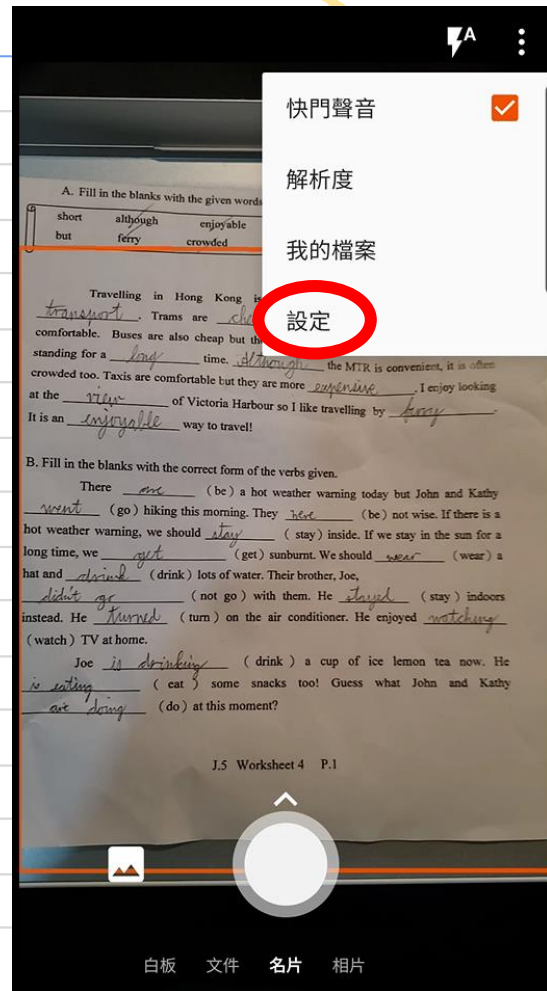 A
快門聲音
解析度
我的檔案
設定
A. Fill in the blanks with the given words
short although enjoyable
but ferry crowded
Travelling in Hong Kong is
transport . Trams are
comfortable. Buses are also cheap but
standing for a long time. Although the MTR is convenient, it is often
crowded too. Taxis are comfortable but they are more expensive . I enjoy looking
at the view of Victoria Harbour so I like travelling by ferry .
It is an enjoyable way to travel!
B. Fill in the blanks with the correct form of the verbs given.
There are (be) a hot weather warning today but John and Kathy
went (go) hiking this morning. They (be) not wise. If there is a
hot weather warning, we should stay (stay) inside. If we stay in the sun for a
long time, we get (get) sunburnt. We should wear (wear) a
hat and drink (drink) lots of water. Their brother, Joe,
didn't go (not go) with them. He stayed (stay) indoors
instead. He turned (turn) on the air conditioner. He enjoyed watching
(watch) TV at home.
Joe is drinking (drink) a cup of ice lemon tea now. He
is eating (eat) some snacks too! Guess what John and Kathy
are doing (do) at this moment?
J.5 Worksheet 4 P.1
白板 文件 名片 相片